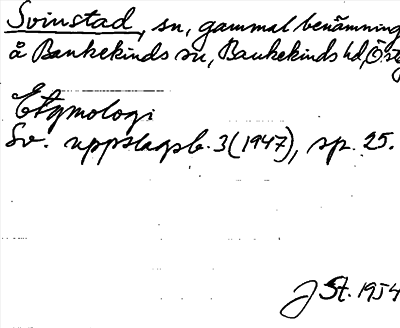 Svinstad, sn, gammal benämning
å Bankekinds sn, Bankekinds hd, Östg
Etymologi
Sv. uppslagsb. 3 (1947), sp. 25.
J St. 1954